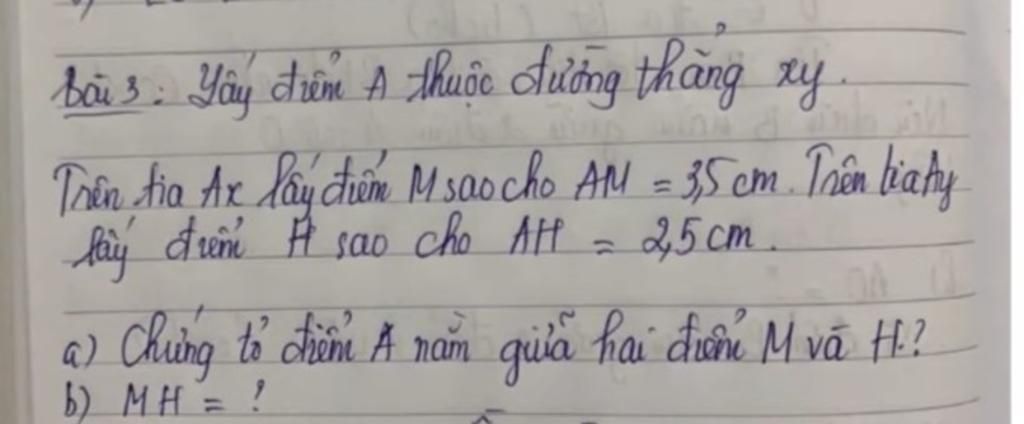 Bài 3: Lấy điểm A thuộc đường thẳng xy.
Trên tia Ax lấy điểm M sao cho AM = 3,5 cm. Trên tia Ay
lấy điểm H sao cho AH = 2,5 cm.
a) Chứng tỏ điểm A nằm giữa hai điểm M và H.?
b) MH = ?